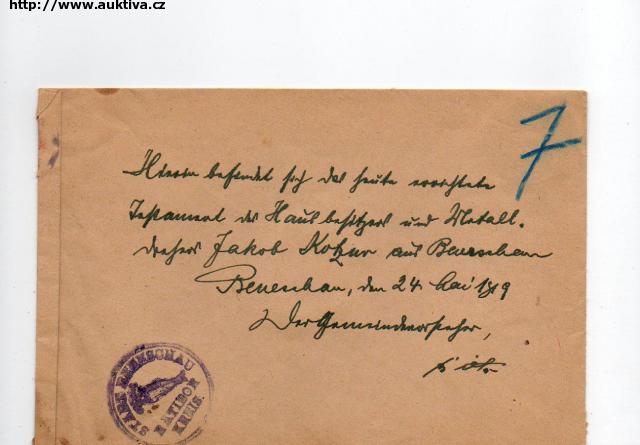 http://www.auktiva.cz
7
Hierin befindet sich das heute errichtete
Testament des Hausbesitzers und Metall-
drehers Jakob Kotzur aus Beneschau
Beneschau, den 24 Mai
Der Gemeindevorsteher,
STADT BENESCHAU
RATIBOR
KREIS